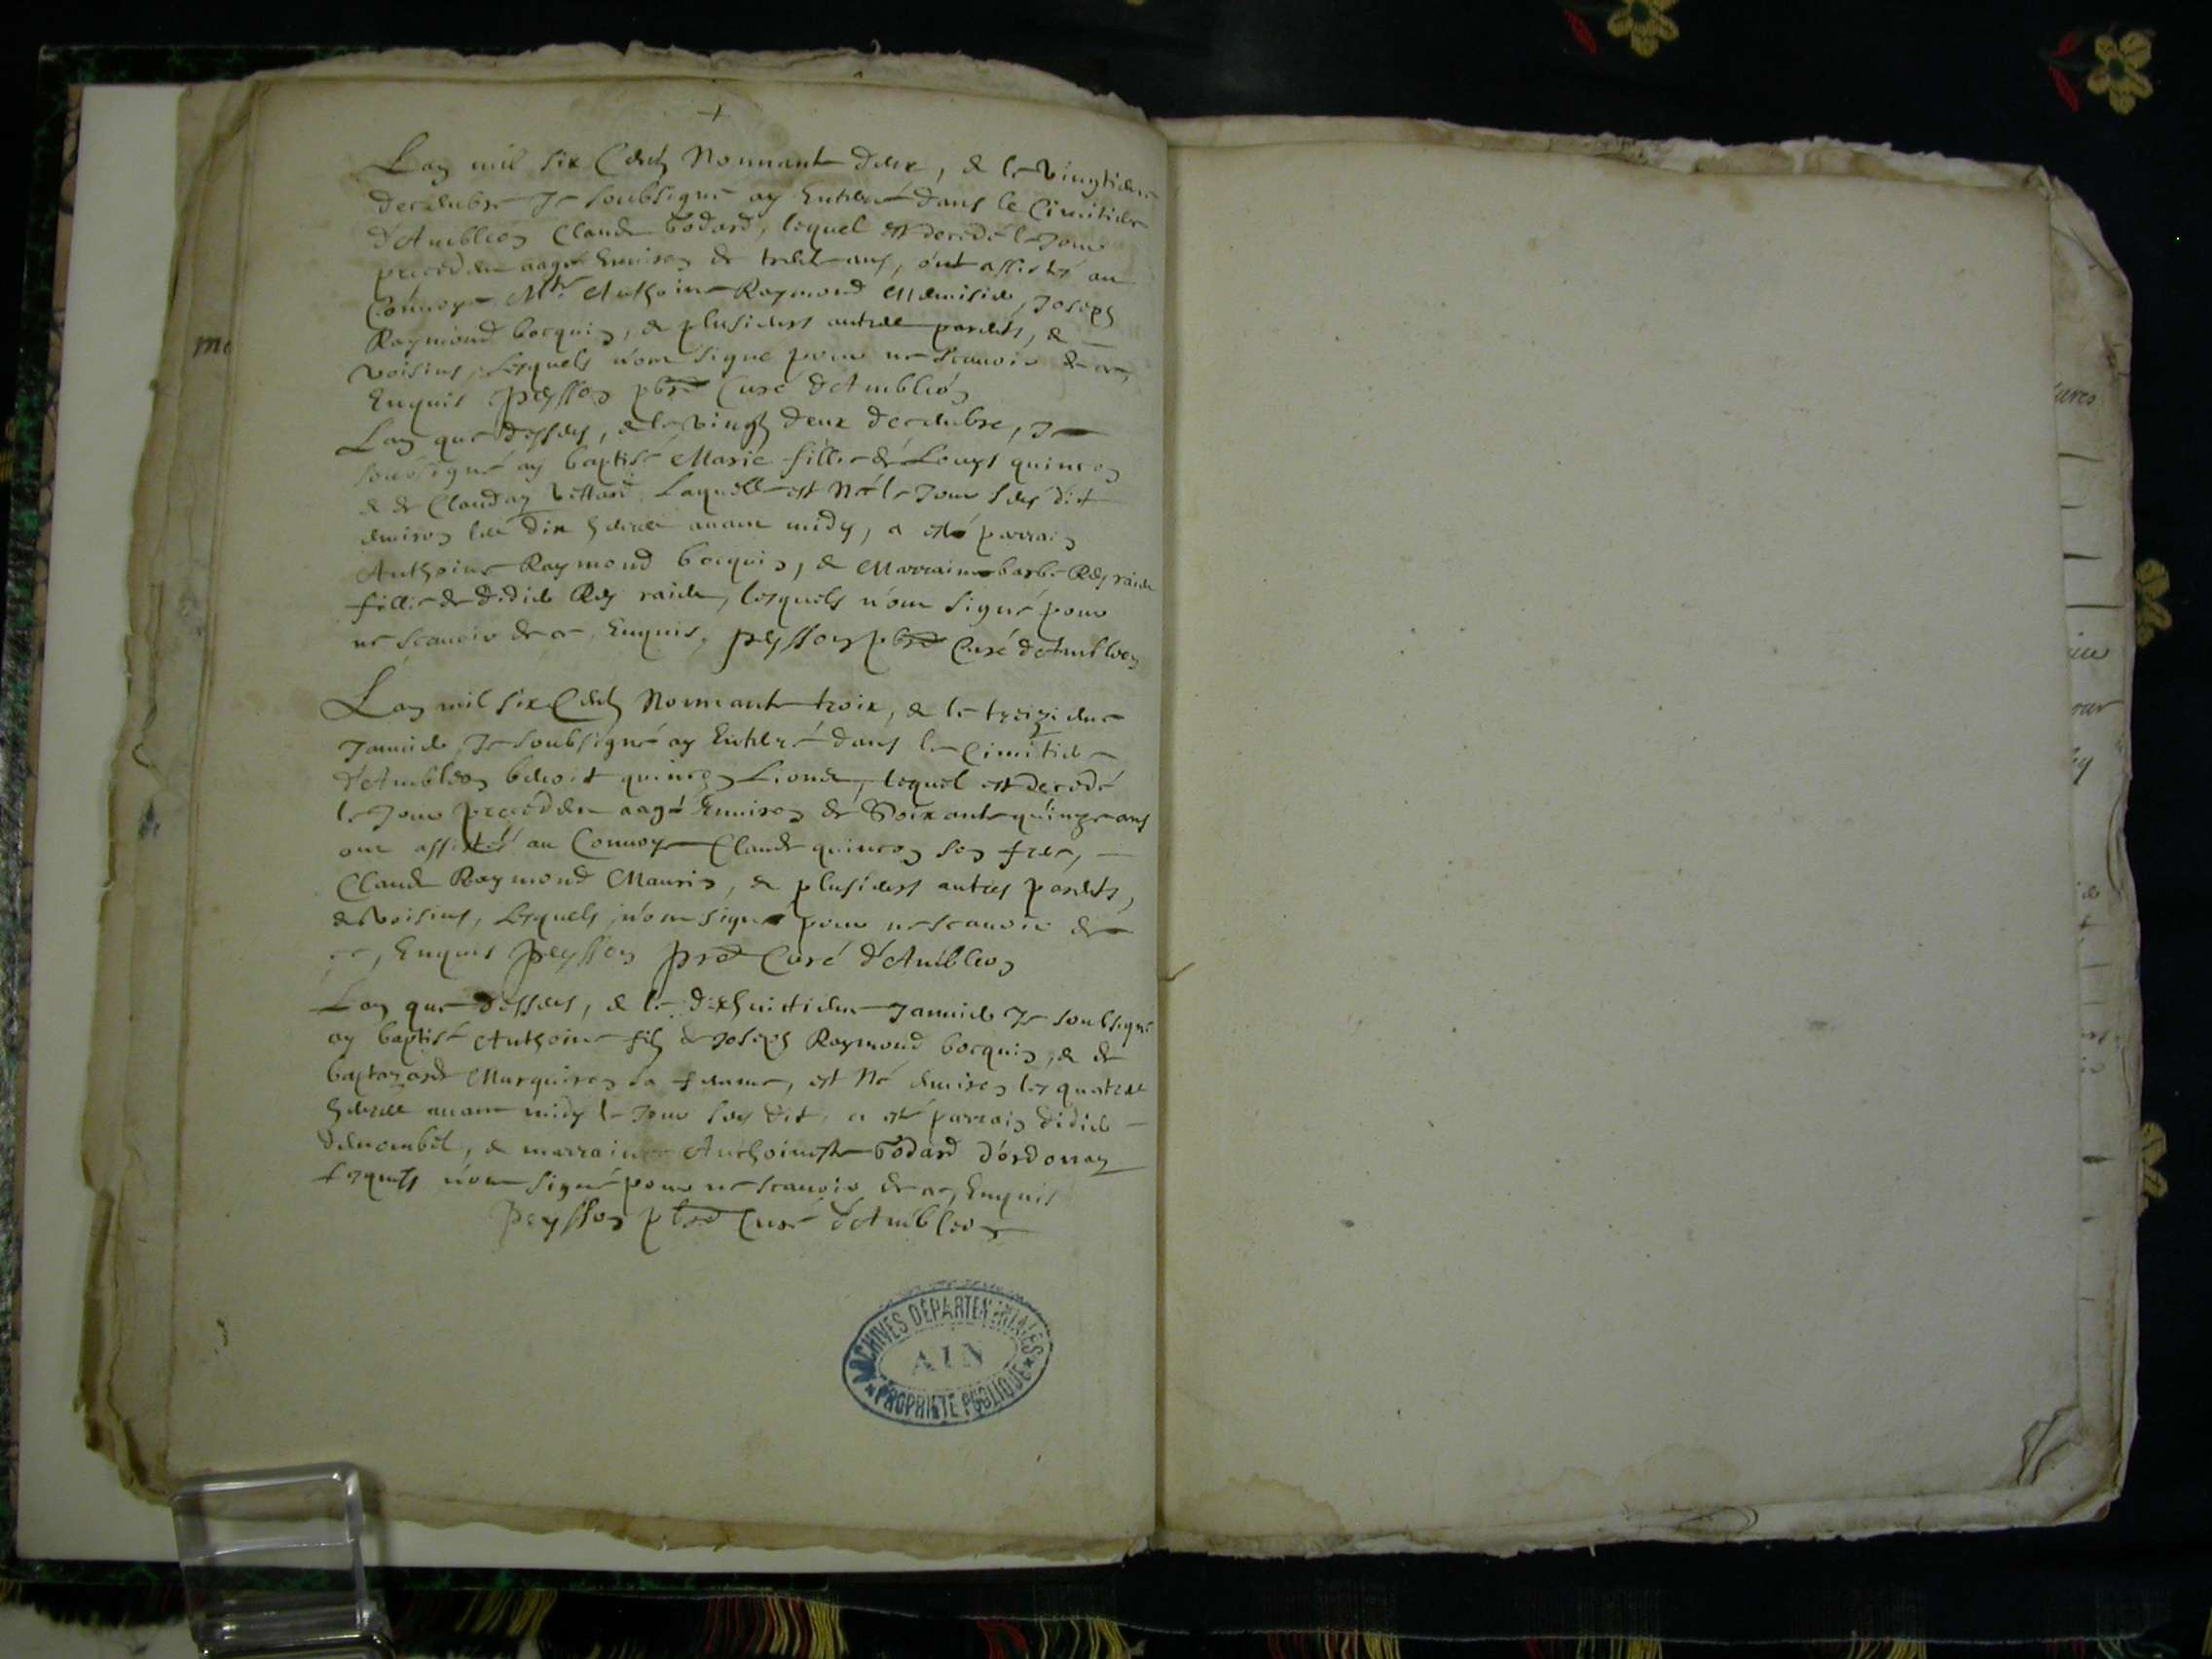 Lan mil six Cents Nonnante deux, & le vingtiesme
decembre Je soubsigné ay Enterré dans le Cimitiere
d'Ambleon Claude Godard, lequel est decedé le Jour
precedent aagé Enuiron de trente ans, ont assistés au
Conuoye Mre Anthoine Raymond Menuisier, Joseph
Raymond bocquin, & plusieurs autres parents, &
voisins, Lesquels n'ont signé pour ne scauoir de ce,
Enquis peysson pbre Curé d'Ambleon
Lan que dessus, & le vingt deux decembre, Je
soubsigné ay baptisé Marie fille de Louys quinson
& de Clauday Laquelle est Né le Jour sus dit
enuiron les dix heures auant midy, a esté parrain
Anthoine Raymond bocquin, & Marraine barbe Rey
fillie de didier Rey lesquels n'ont signé pour
ne scauoir de ce, Enquis, peysson pbre Curé d'Ambleon
Lan mil six Cents Nonnante troix, & le treiziesme
Januier, Je soubsigné ay Enterré dans le Cimitiere
d'Ambleon benoit quinson lequel est decedé
le Jour precedent aagé Enuiron de Soixante quinze ans
ont assistés au Conuoye Claude quinson son frere,
Claude Raymond Maurin, & plusieurs autres parents,
& voisins, Lesquels n'ont signé pour ne scauoir de
ce, Enquis peysson pbre Curé d'Ambleon
Lan que dessus, & le dixhuictiesme Januier Je soubsigné
ay baptisé Anthoine fils de Joseph Raymond bocquin, & de
Murquiron sa femme, est Né enuiron les quatre
heures auant midy le Jour sus dit, a esté parrain didier
& marraine Anthoinette Godard d'ordonay
Lesquels n'ont signé pour ne scauoir de ce, Enquis
peysson pbre Curé d'Ambleon
ARCHIVES DEPARTEMENTALES
AIN
PROPRIETE PUBLIQUE